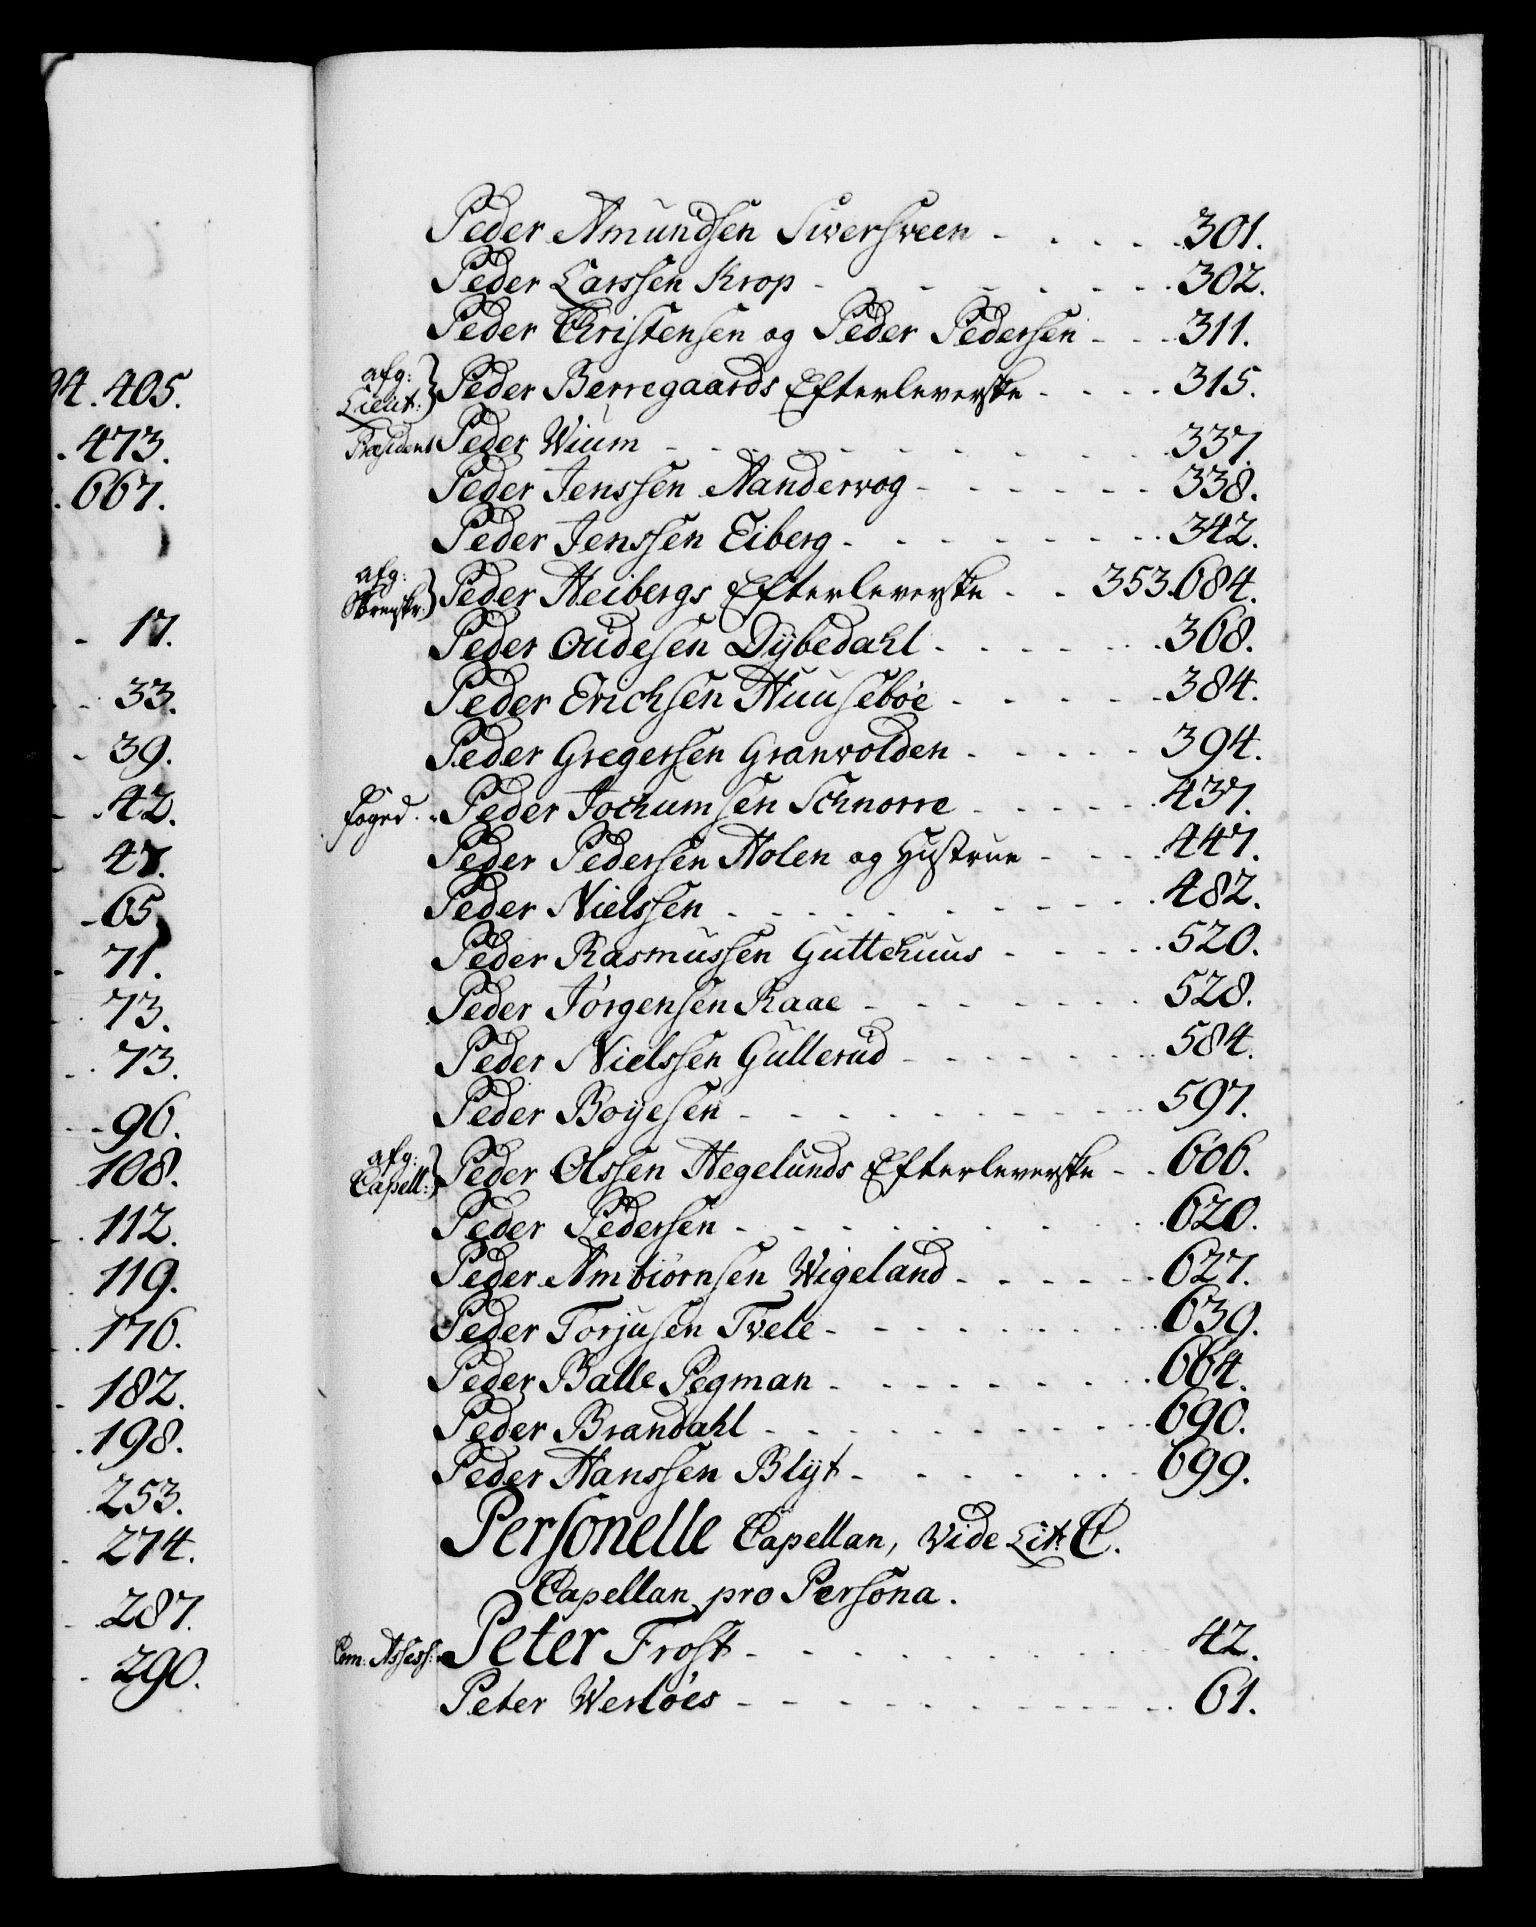 94. 405.
473.
667.
17.
33.
39.
42.
47.
65.
71.
73.
73.
96.
108.
112.
119.
176.
182.
198.
253.
274.
287.
290.
Peder Amundsen Siversveen - - - - 301.
Peder Larssen Krop - - - - - - - 302.
Peder Christensen og Peder Pedersen - - - 311.
afg: Lieut: } Peder Berregaards Efterleverske - - - - 315.
Præsident Peder Wium - - - - - - - - 337.
Peder Jenssen Aandervog - - - - - - 338.
Peder Jenssen Eiberg - - - - - - - 342.
afg: } Peder Heibergs Efterleverske - - 353. 684.
Peder Oudesen Dÿbedahl - - - - - - 368.
Peder Erichsen Huusebøe - - - - - 384.
Peder Gregersen Granvolden - - - - - 394.
Foged. Peder Jochumsen Schnorre - - - - - 437.
Peder Pedersen Holen og Hustrue - - - - 447.
Peder Nielssen - - - - - - - - - 482.
Peder Rasmussen Guttehuus - - - - - 520.
Peder Jørgensen Raae - - - - - - - 528.
Peder Nielssen Gullerud - - - - - - - 584.
Peder Boÿesen - - - - - - - - - 597.
afg: Capell: } Peder Olssen Hegelunds Efterleverske - - 606.
Peder Pedersen - - - - - - - - - 620.
Peder Ambiørnsen Wigeland - - - - - - 627.
Peder Torjusen Tvele - - - - - - - - 639.
Peder Balle Pegman - - - - - - - - 664.
Peder Brandahl - - - - - - - - - 690.
Peder Hanssen Blÿt - - - - - - - 699.
Personelle Capellan, vide Lit: C.
Capellan pro Persona.
Com: Assess: Peter Frost - - - - - - - - - - 42.
Peter Werløes - - - - - - - - - - 61.